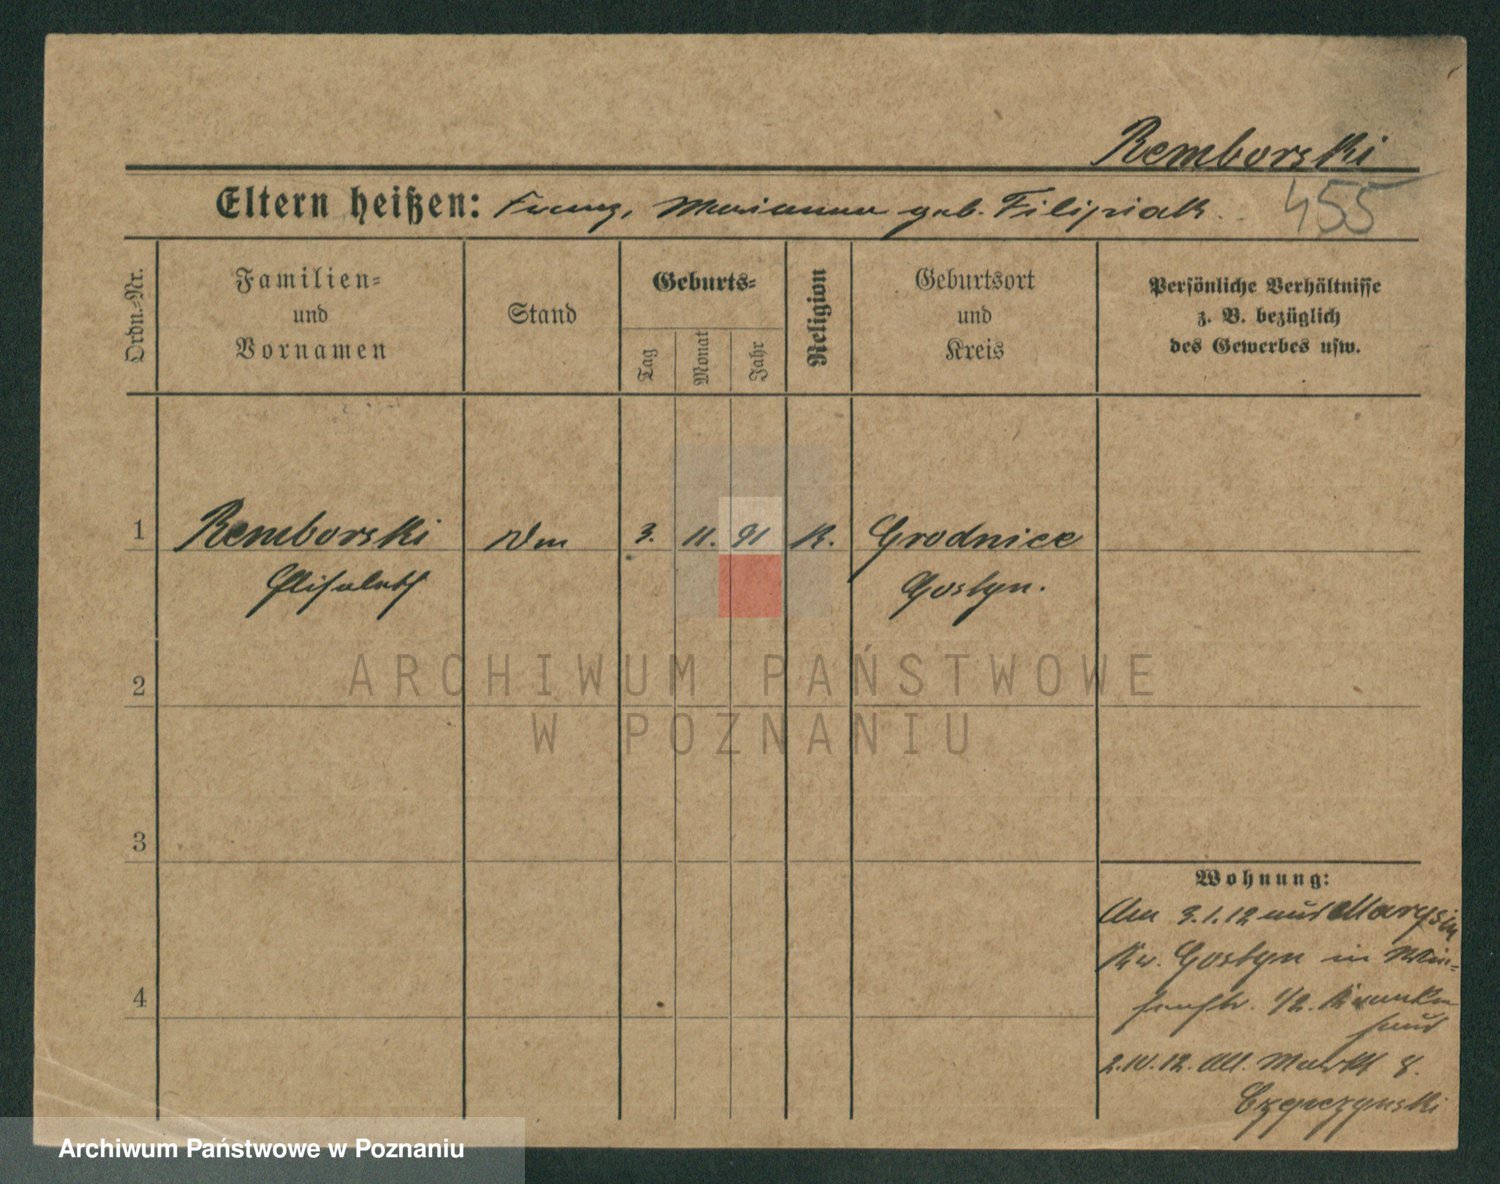 Remborski
455
Eltern heißen: Franz, Marianna geb. Filipiak.
Ordn.-Nr.
Familien- und Vornamen
Stand
Geburts-
Tag
Monat
Jahr
Religion
Geburtsort und Kreis
Persönliche Verhältnisse
z. B. bezüglich
des Gewerbes usw.
1 Remborski 3. 11. 91 K. Grodnice
Elisabeth Gostyn.
2
ARCHIWUM PAŃSTWOWE
W POZNANIU
3
Wohnung:
Am 3.1.12 aus Marysin
Kr. Gostyn in
1/2. Kranken
haus
4
2.IV.12. Alt. Markt 8.
Archiwum Państwowe w Poznaniu